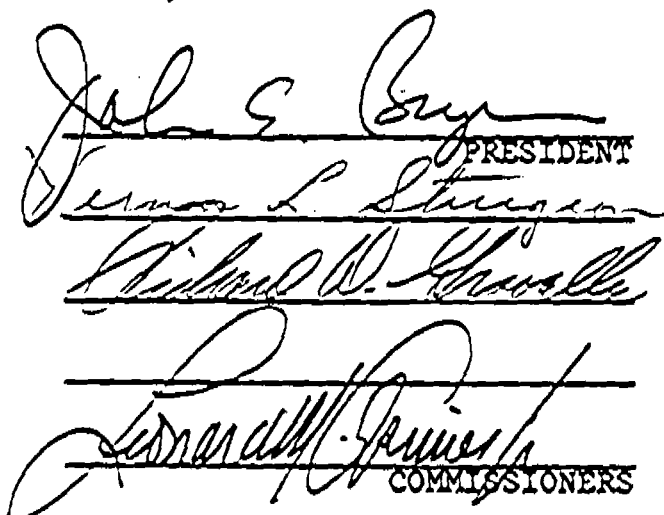 John E. Bryson
PRESIDENT
Vernon L. Sturgeon
Richard D. Gravelle
Leonard M. Grimes, Jr.
COMMISSIONERS